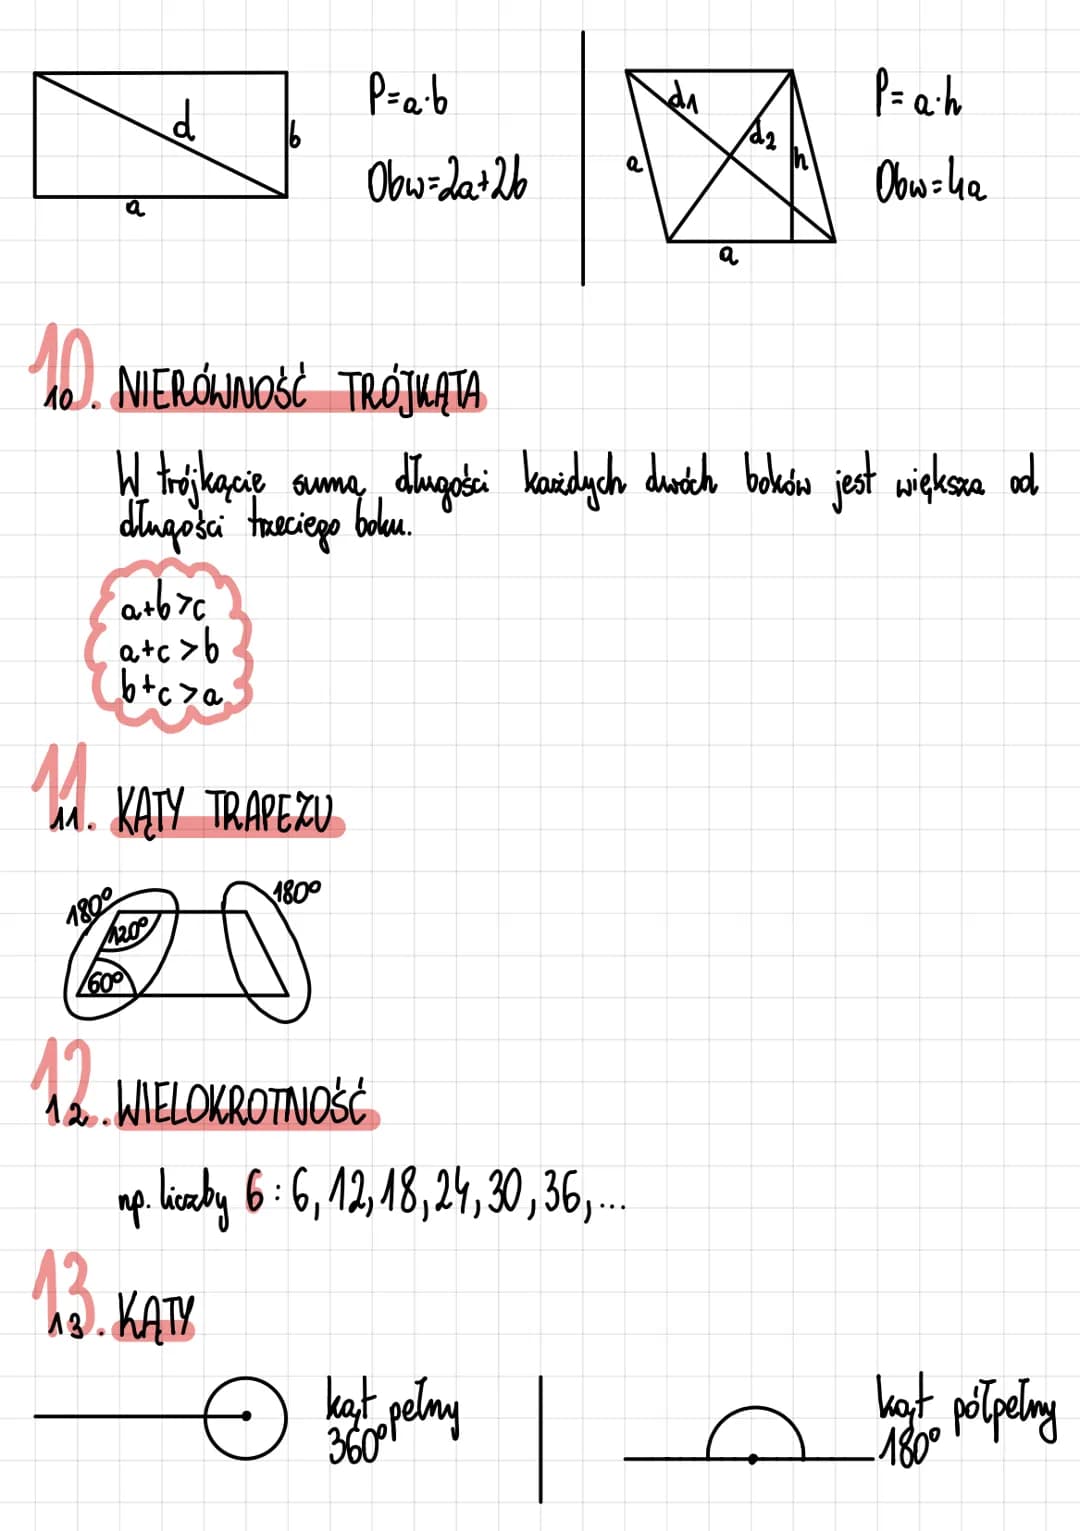 d
b
a
P=a·b
Obw=2a+2b
d1
d2
a
h
a
P=a·h
Obw=4a
10.
10. NIERÓWNOŚĆ TRÓJKĄTA
W trójkącie suma długości każdych dwóch boków jest większa od
długości trzeciego boku.
a+b>c
a+c>b
b+c>a
11.
11. KĄTY TRAPEZU
180°
120°
60°
180°
12.
12. WIELOKROTNOŚĆ
np. liczby 6: 6, 12, 18, 24, 30, 36, ...
13.
13. KĄTY
kąt pełny
360°
kąt półpełny
180°